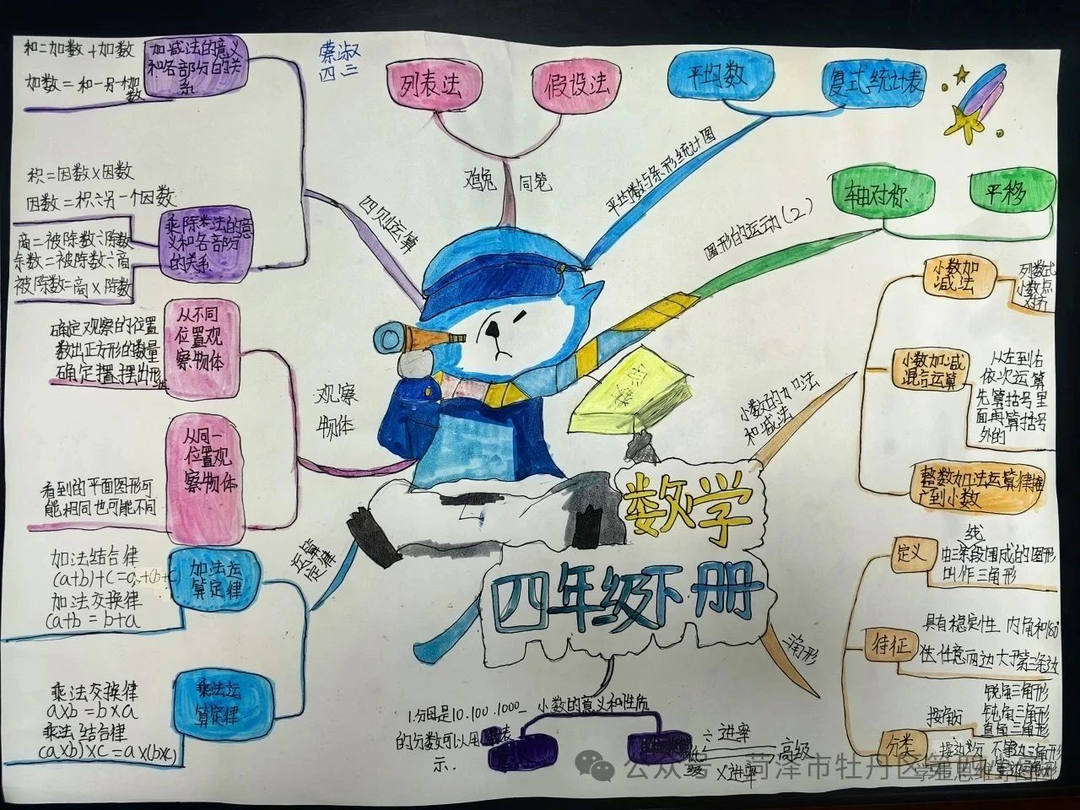 和=加数+加数
加数=和-另一个加数
加减法的意义
和各部分的关
系
积=因数×因数
因数=积÷另一个因数
商=被除数÷除数
余数=被除数÷商
被除数=商×除数
乘除法的意
义和各部分
的关系
四则运算
列表法
假设法
鸡兔
同笼
平均数
复式统计表
平均数与条形统计图
图形的运动(2)
轴对称
平移
确定观察的位置
数出正方形的数量
确定摆摆出形
从不同
位置观
察物体
从同一
位置观
察物体
看到的平面图形可
能相同也可能不同
观察
物体
小数的加法
和减法
小数加
减法
列竖式
小数点
对齐
小数加减
混合运算
从左到右
依次运算
先算括号里
面再算括号
外的
整数加法运算律推
广到小数
数学
四年级下册
加法结合律
加法交换律
a+b=b+a
加法运
算定律
运算
定律
乘法交换律
a×b=b×a
乘法结合律
(a×b)×c=a×(b×c)
乘法运
算定律
小数的意义和性质
1.分母是10.100.1000
的分数可以用
示.
÷进率
高级
×进率
三角形
定义
线
由三条段围成的图形
叫作三角形
特征
具有稳定性 内角和180°
任意两边大于第三边
分类
按角分
锐角三角形
钝角三角形
直角三角形
按边分 不等边三角形
公众号·菏泽市牡丹区第